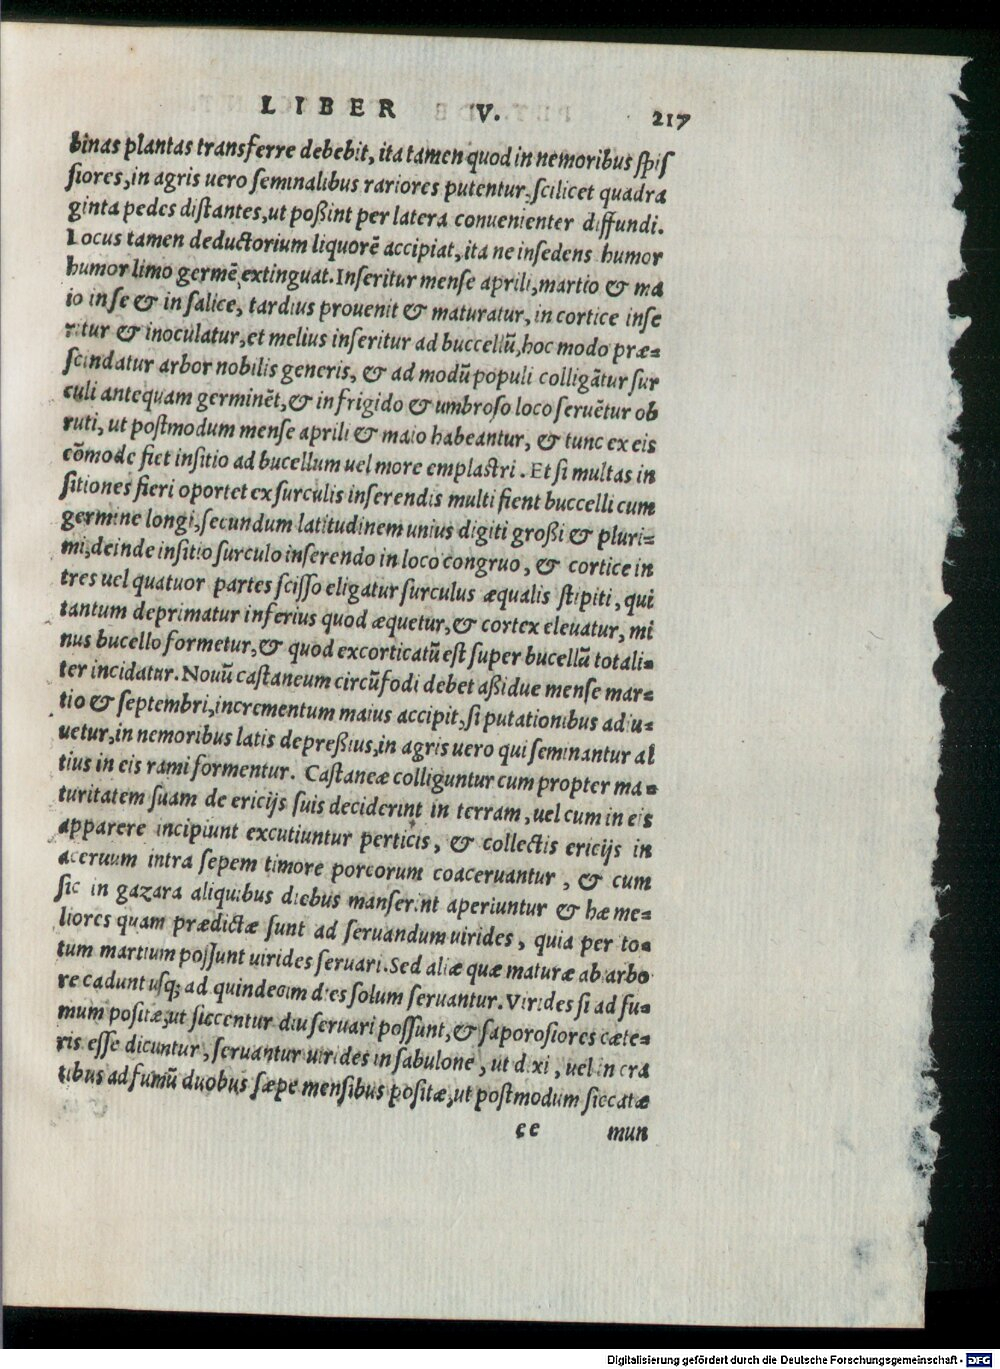 LIBER V. 217
binas plantas transferre debebit, ita tamen quod in nemoribus spis
siores, in agris uero seminalibus rariores putentur, scilicet quadra
ginta pedes distantes, ut poßint per latera conuenienter diffundi.
Locus tamen deductorium liquorẽ accipiat, ita ne insedens humor
humor limo germẽ extinguat. Inseritur mense aprili, martio & ma
io in se & in salice, tardius prouenit & maturatur, in cortice inse
ritur & inoculatur, et melius inseritur ad buccellũ, hoc modo præ=
scindatur arbor nobilis generis, & ad modũ populi colligãtur sur
culi antequam germinẽt, & in frigido & umbroso loco seruẽtur ob
ruti, ut postmodum mense aprili & maio habeantur, & tunc ex eis
cõmode fiet insitio ad bucellum uel more emplastri. Et si multas in
sitiones fieri oportet ex surculis inserendis multi fient buccelli cum
germine longi, secundum latitudinem unius digiti großi & pluri=
mi, deinde insitio surculo inserendo in loco congruo, & cortice in
tres uel quatuor partes scisso eligatur surculus æqualis stipiti, qui
tantum deprimatur inferius quod æquetur, & cortex eleuatur, mi
nus bucello formetur, & quod excorticatũ est super bucellũ totali=
ter incidatur. Nouũ castaneum circũfodi debet aßidue mense mar=
tio & septembri, incrementum maius accipit, si putationibus adiu=
uetur, in nemoribus latis depreßius, in agris uero qui seminantur al
tius in eis rami formentur. Castaneæ colliguntur cum propter ma=
turitatem suam de ericijs suis deciderint in terram, uel cum in eis
apparere incipiunt excutiuntur perticis, & collectis ericijs in
aceruum intra sepem timore porcorum coaceruantur, & cum
sic in gazara aliquibus diebus manserint aperiuntur & hæ me=
liores quam prædictæ sunt ad seruandum uirides, quia per to=
tum martium possunt uirides seruari. Sed aliæ quæ maturæ ab arbo
re cadunt usq; ad quindecim dies solum seruantur. Virides si ad fu=
mum positæ, ut siccentur diu seruari possunt, & saporosiores cæte=
ris esse dicuntur, seruantur uirides in sabulone, ut dixi, uel in cra
tibus ad fumũ duobus sæpe mensibus positæ, ut postmodum siccatæ
ce mun
Digitalisierung gefördert durch die Deutsche Forschungsgemeinschaft - DFG